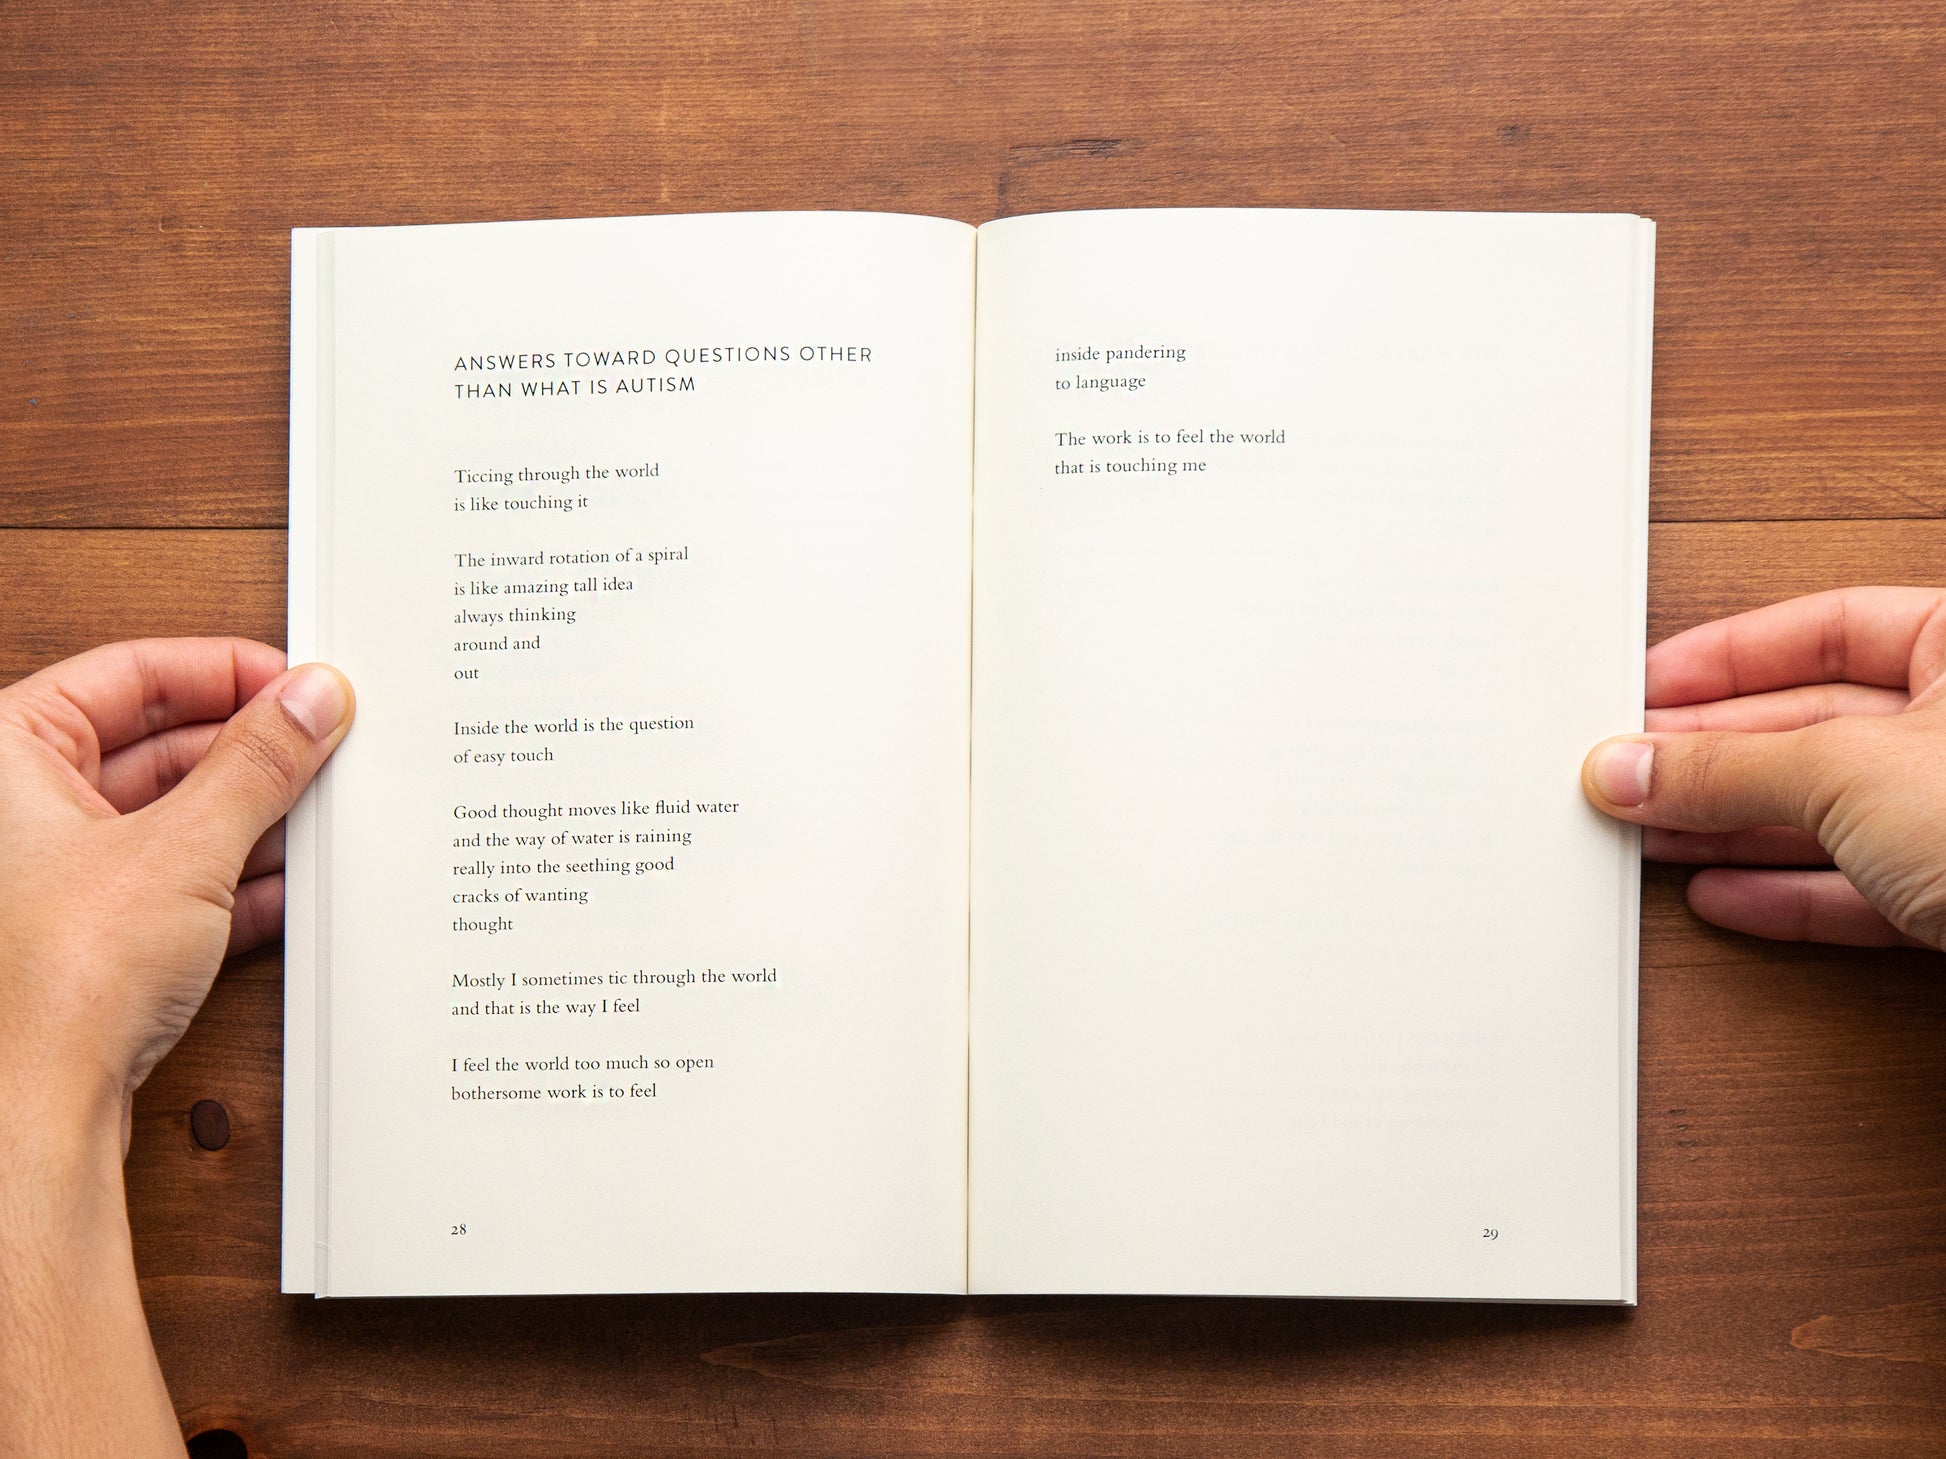 ANSWERS TOWARD QUESTIONS OTHER
THAN WHAT IS AUTISM
Ticcing through the world
is like touching it
The inward rotation of a spiral
is like amazing tall idea
always thinking
around and
out
Inside the world is the question
of easy touch
Good thought moves like fluid water
and the way of water is raining
really into the seething good
cracks of wanting
thought
Mostly I sometimes tic through the world
and that is the way I feel
I feel the world too much so open
bothersome work is to feel
28
inside pandering
to language
The work is to feel the world
that is touching me
29